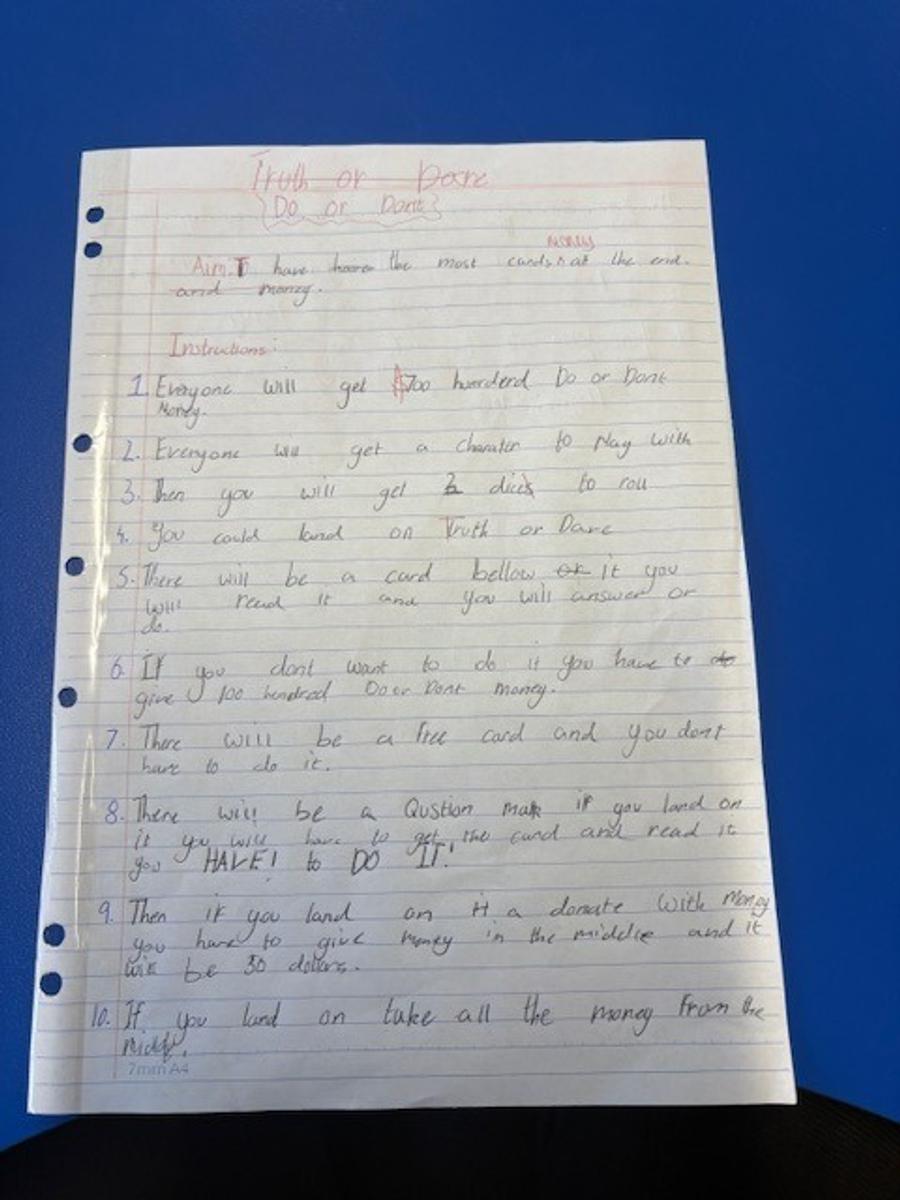 Truth or Dare
Do or Dont
money
Aim. To have the most cards ^ at the end.
and money.
Instructions:
1. Everyone will get $700 hunderd Do or Dont
Money.
2. Everyone will get a charater to Play with
3. Then you will get 2 dices to roll
4. You could land on Truth or Dare
5. There will be a card bellow or it you
will read it and you will answer or
do.
6. If you dont want to do it you have to do
give 100 hundred Do or Dont money.
7. There will be a free card and you dont
have to do it.
8. There will be a Qustion mark if you land on
it you will have to get the card and read it
you HAVE! to DO IT!
9. Then if you land on a donate with Money
you have to give money in the middle and it
will be 30 dollars.
10. If you land on take all the money from the
middle.
7mm A4